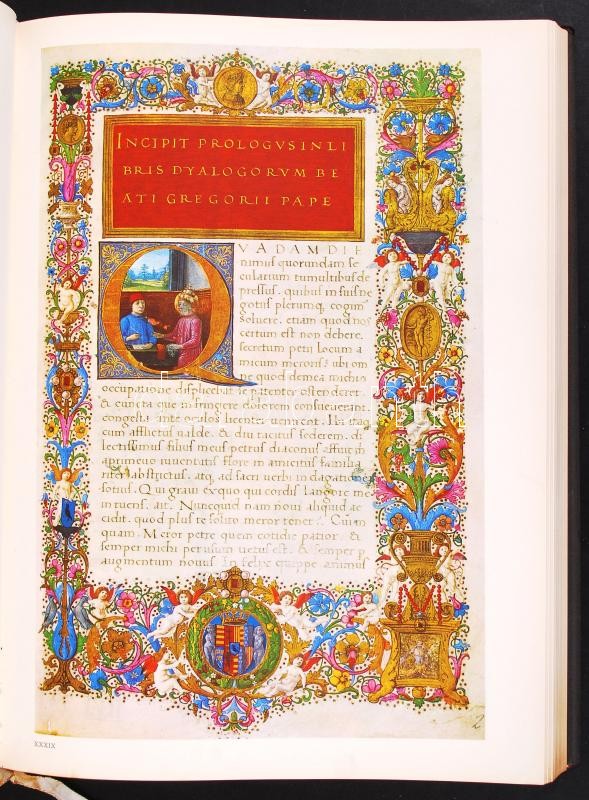 INCIPIT PROLOGVS IN LI
BRIS DYALOGORVM BE
ATI GREGORII PAPE
Q
VADAM DIE
nimus quorundam se
cularium tumultibus de
pressus. quibus in suis ne
gotiis plerumq cogim
soluere. etiam quod nos
certum est non debere.
secretum petii locum a
micum meroris. ubi om
ne quod de mea michi
occupatione displicebat se patenter ostenderet.
& cuncta que infringere dolorem consueuerant.
congesta ante oculos licenter uenirent. Ibi itaq
cum afflictus ualde. & diu tacitus sederem. di
lectissimus filius meus petrus diaconus affuit m
a primeuo iuuentutis flore in amicitiis familia
riter obstrictus. atq, ad sacri uerbi indagatione
sotius. Qui graui excoqui cordis langore me
intuens. ait. Nunequid nam noui aliquid ac
cidit. quod plus te solito meror tenet. Cui in
quam. Meror petre quem cotidie patior. &
semper michi per usum uetus est. & semper p
augmentum nouus. Infelix quippe animus
2
XXXIX